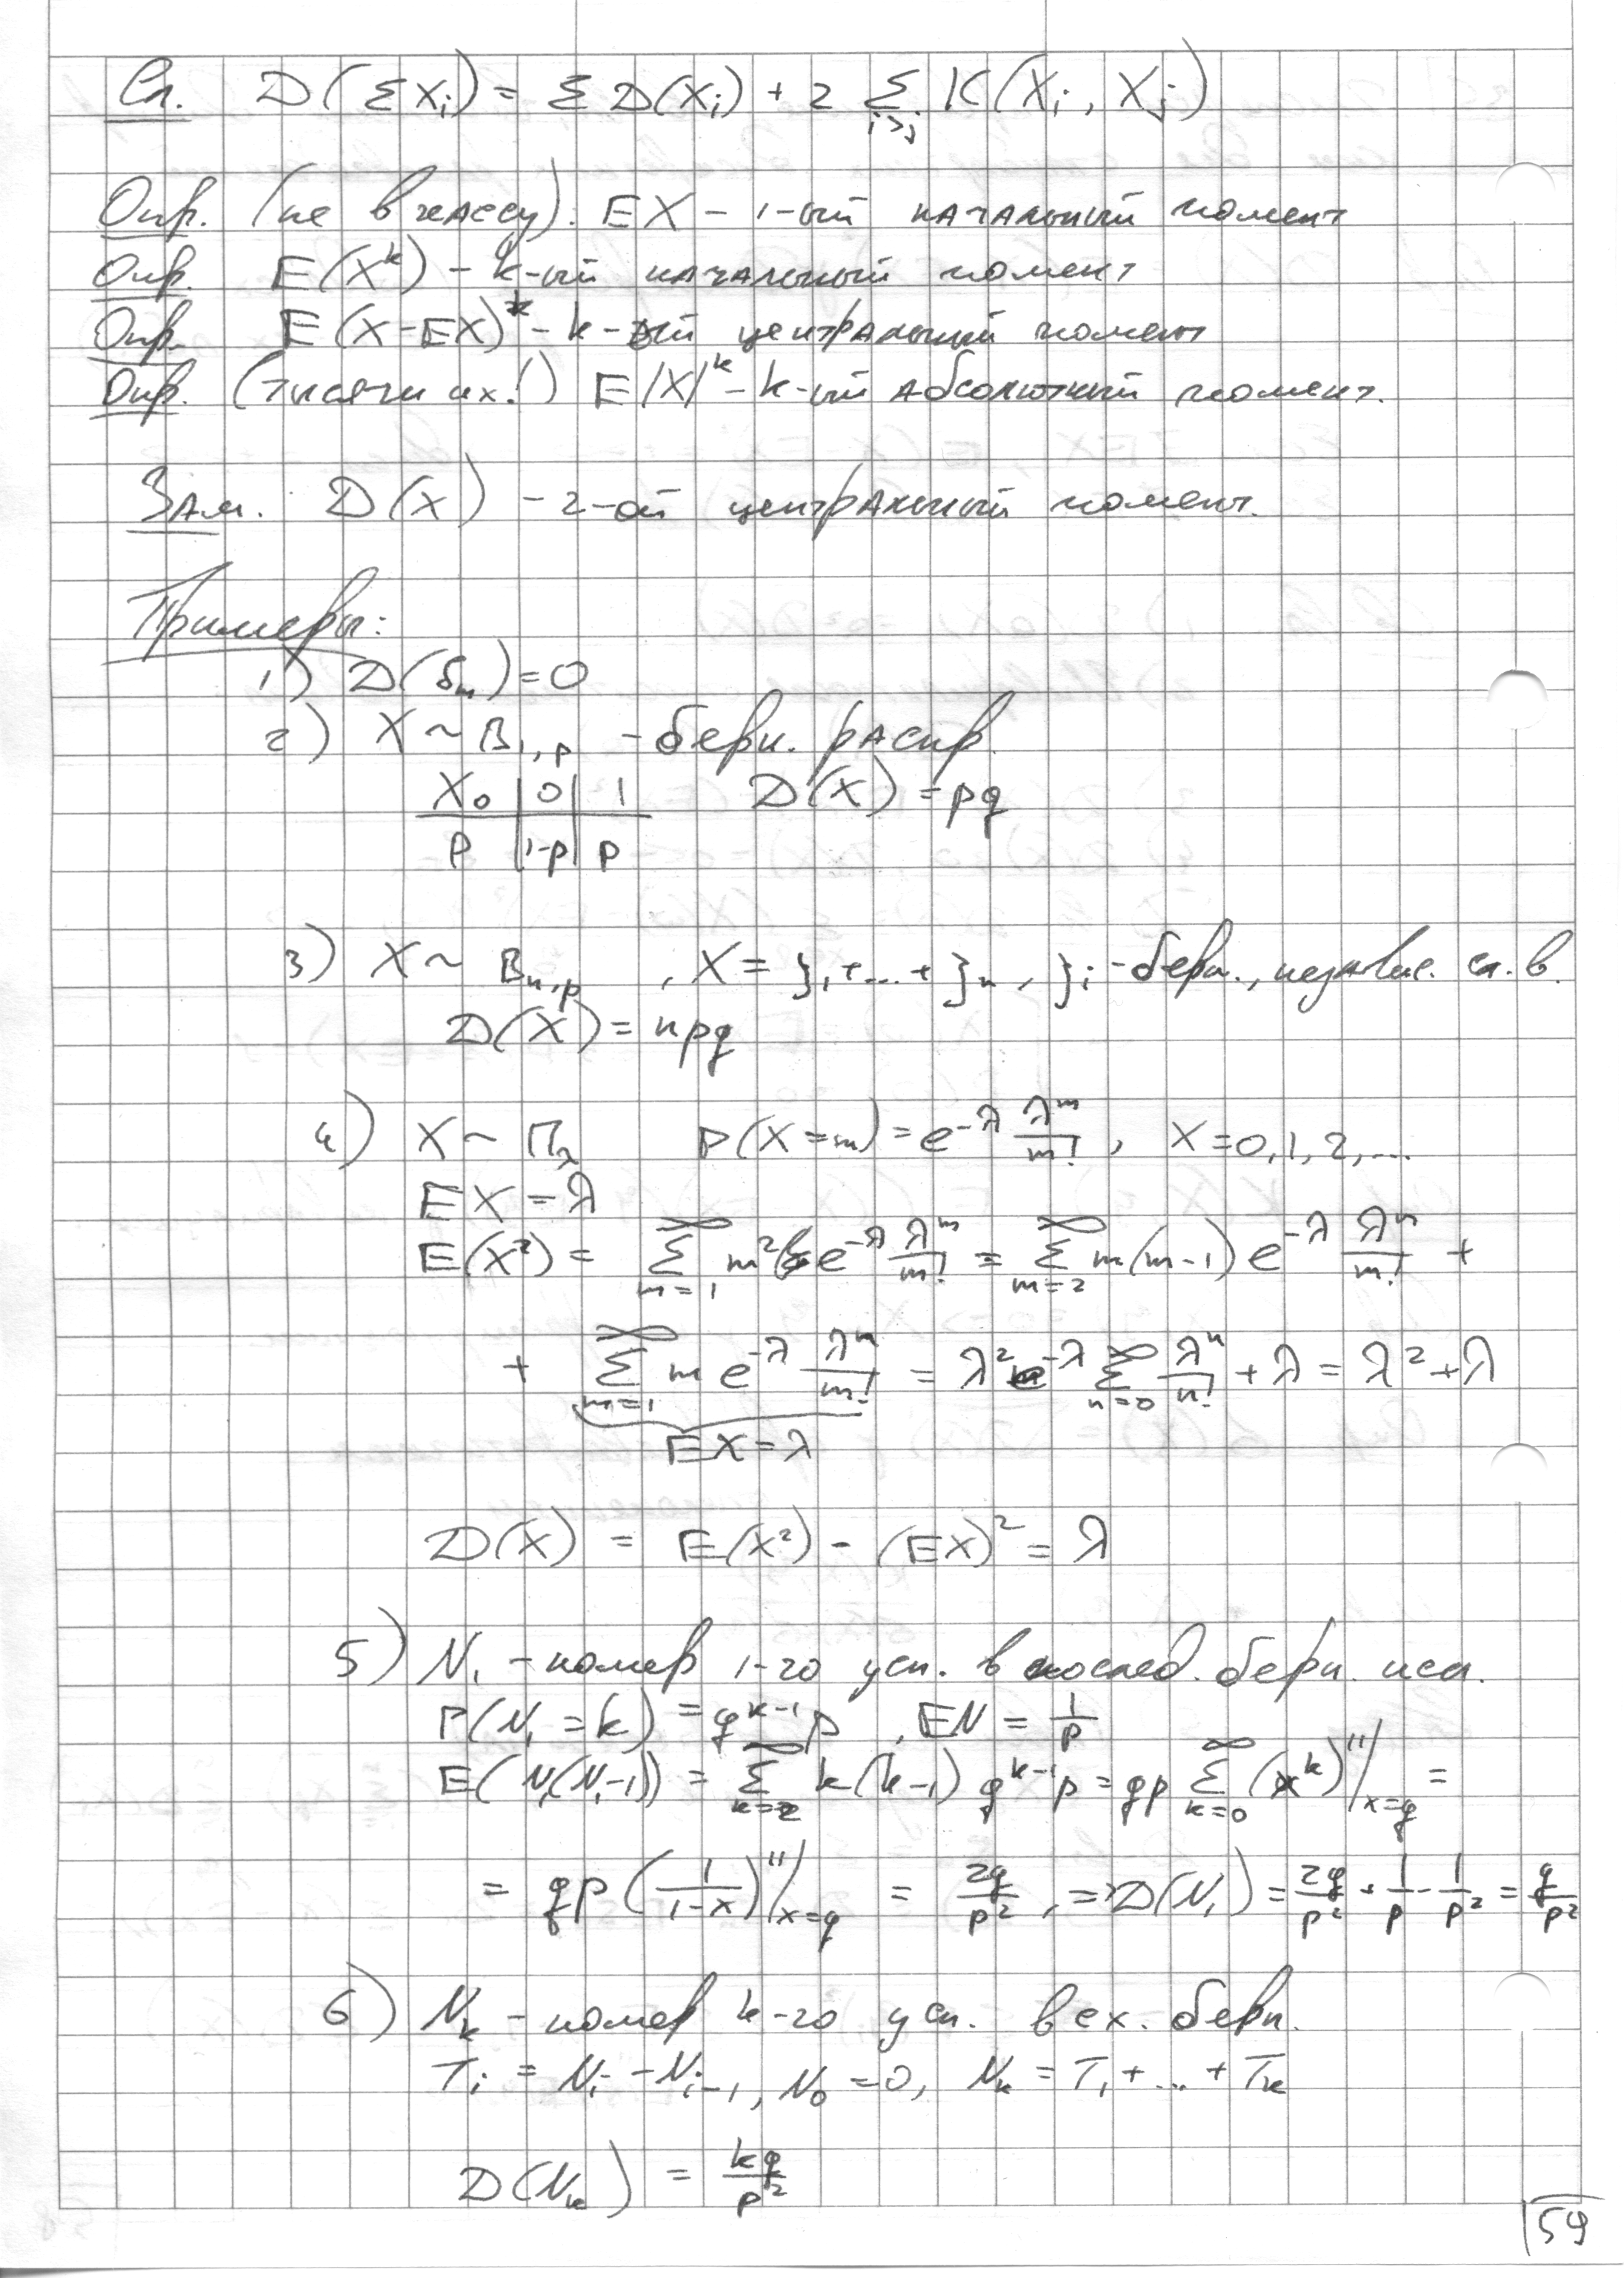 Сл. D(ΣXᵢ) = Σ D(Xᵢ) + 2 Σ_{i>j} K(Xᵢ, Xⱼ)
Опр. (не в кассу). EX – 1-ый начальный момент
Опр. E(X^k) – k-ый начальный момент
Опр. E(X–EX)^k – k-ый центральный момент
Опр. (тысячи их!) E|X|^k – k-ый абсолютный момент.
Зам. D(X) – 2-ой центральный момент.
Примеры:
1) D(δₘ) = 0
2) X ~ B_{1,p} – берн. распр.
X₀ | 0 | 1 D(X) = pq
P | 1-p | p
3) X ~ B_{n,p}, X = ξ₁+...+ξₙ, ξᵢ – берн., независ. сл. в.
D(X) = npq
4) X ~ Π_λ P(X=m) = e^{-λ} λ^m/m!, X=0,1,2,...
EX = λ
E(X²) = Σ_{m=1}^∞ m² e^{-λ} λ^m/m! = Σ_{m=2}^∞ m(m-1) e^{-λ} λ^m/m! +
+ Σ_{m=1}^∞ m e^{-λ} λ^m/m! = λ² e^{-λ} Σ_{n=0}^∞ λ^n/n! + λ = λ² + λ
EX = λ
D(X) = E(X²) – (EX)² = λ
5) N₁ – номер 1-го усп. в послед. берн. исп.
P(N₁ = k) = q^{k-1} p, EN = 1/p
E(N₁(N₁-1)) = Σ_{k=2}^∞ k(k-1) q^{k-1} p = qp Σ_{k=0}^∞ (x^k)''|_{x=q} =
= qp (1/(1-x))''|_{x=q} = 2q/p², => D(N₁) = 2q/p² + 1/p - 1/p² = q/p²
6) N_k – номер k-го усп. в сх. берн.
Tᵢ = Nᵢ – N_{i-1}, N₀ = 0, N_k = T₁ + ... + T_k
D(N_k) = kq/p²
59